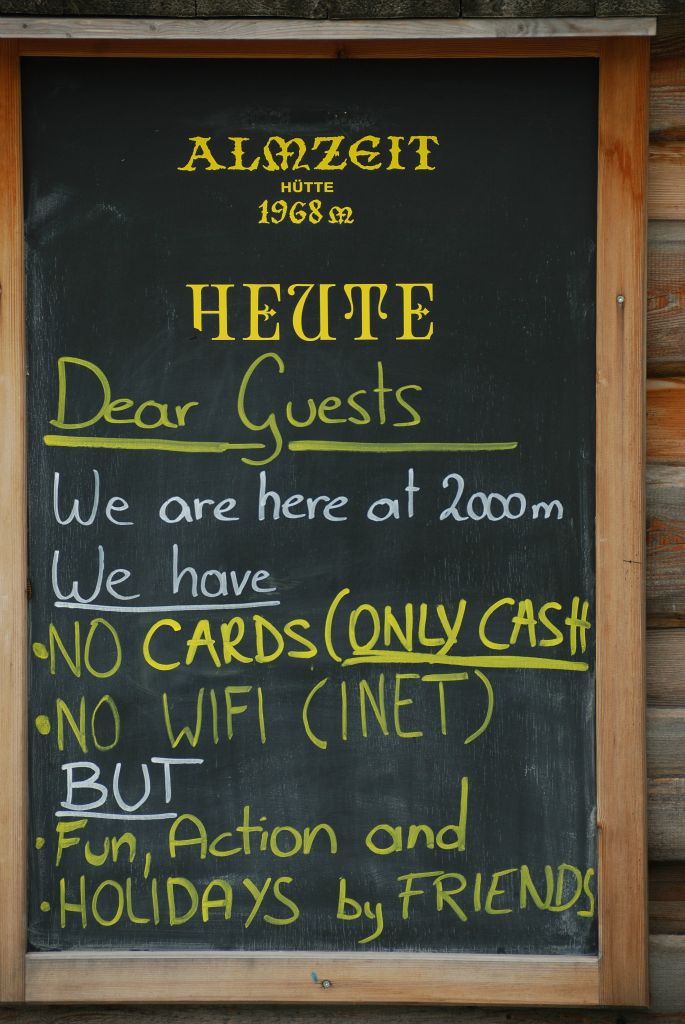 ALMZEIT
HÜTTE
1968 m
HEUTE
Dear Guests
We are here at 2000m
We have
• NO CARDS (ONLY CASH
• NO WIFI (INET)
BUT
• Fun, Action and
• HOLIDAYS by FRIENDS